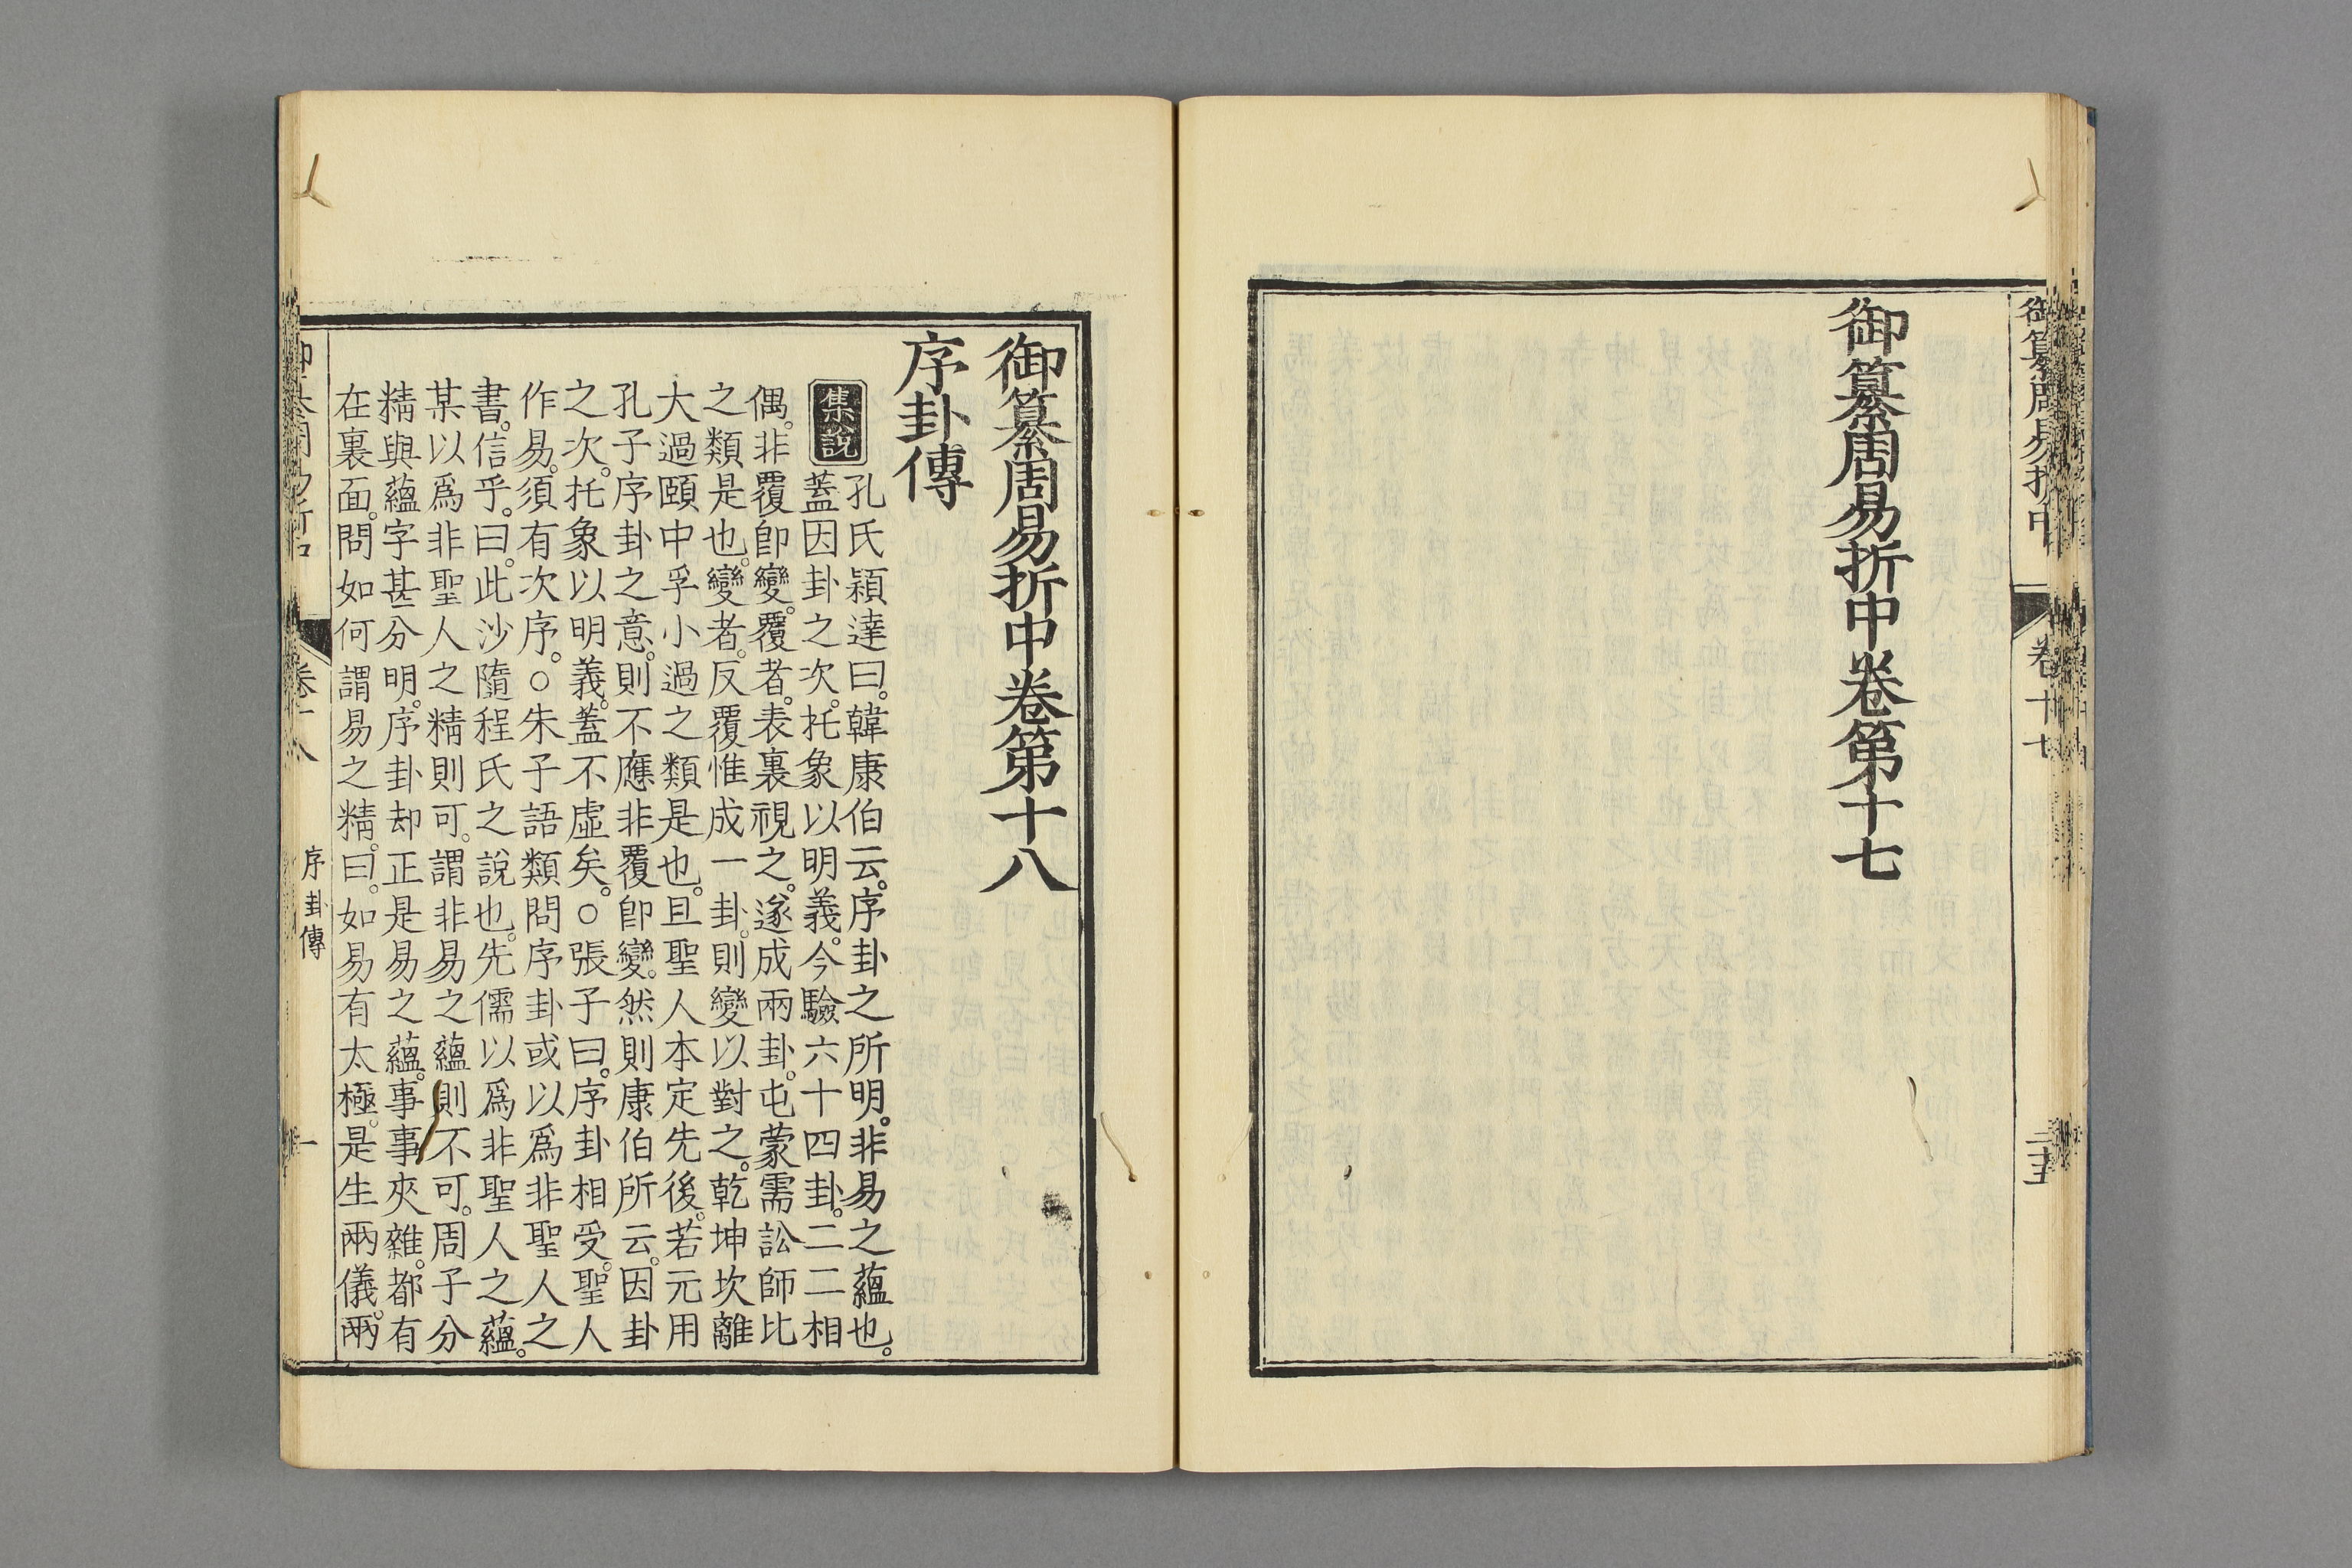 御纂周易折中
卷十七
御纂周易折中卷第十七
御纂周易折中卷第十八
序卦傳
集說
孔氏穎達曰。韓康伯云。序卦之所明。非易之蘊也。
蓋因卦之次。托象以明義。今驗六十四卦。二二相
偶。非覆卽變。覆者。表裏視之。遂成兩卦。屯蒙需訟師比
之類是也。變者。反覆惟成一卦。則變以對之。乾坤坎離
大過頤中孚小過之類是也。且聖人本定先後。若元用
孔子序卦之意。則不應非覆卽變。然則康伯所云。因卦
之次。托象以明義。蓋不虛矣。○張子曰。序卦相受。聖人
作易。須有次序。○朱子語類問序卦或以爲非聖人之
書。信乎。曰。此沙隨程氏之說也。先儒以爲非聖人之蘊。
某以爲非聖人之精則可。謂非易之蘊則不可。周子分
精與蘊字甚分明。序卦却正是易之蘊。事事夾雜。都有
在裏面。問如何謂易之精。曰。如易有太極。是生兩儀。兩
卷十八
序卦傳
一